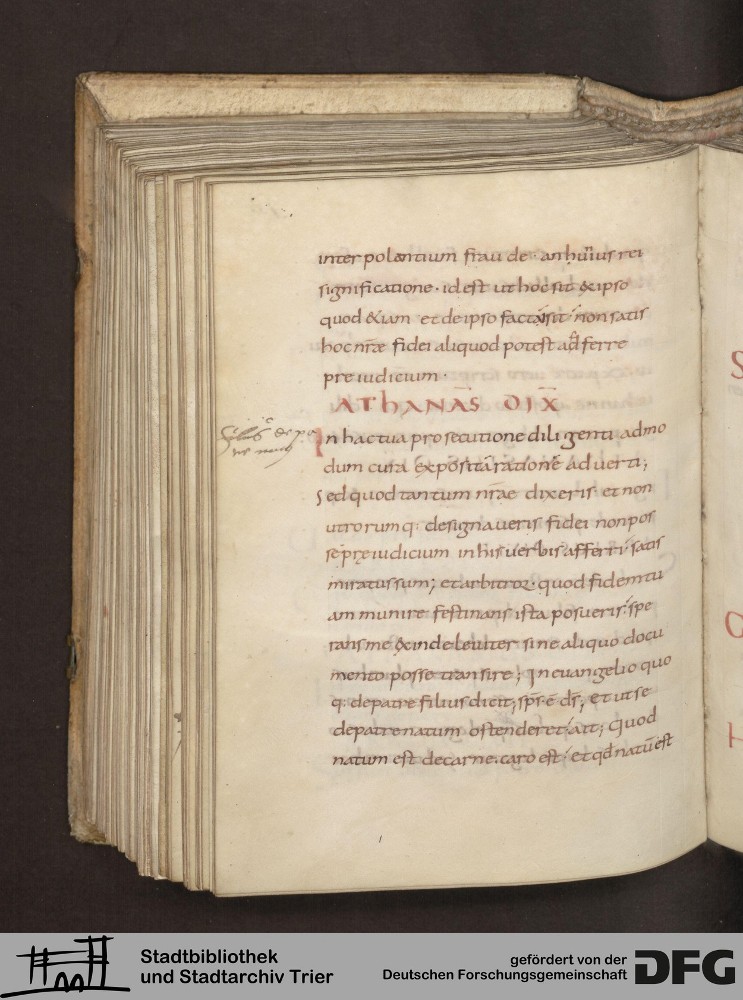 inter polantium frau de · an huius rei
significatione · id est ut hoc sit & ipso
quod &iam et de ipso facta sit non satis
hoc nr̄ae fidei aliquod potest adferre
pre iudicium ·
AThANAS̄ DIX̄
In hac tua prosecutione diligenti admo
dum cura exposita ratione adverti;
Sed quod tantum nr̄ae dixeris et non
utrorumq: designaueris fidei non pos
se pręiudicium in his uerbis afferri satis
miratus sum; et arbitror quod fidem tu
am munire festinans ista posueris spe
rans me &inde leuiter sine aliquo docu
mento posse transire; In euangelio quo
q: de patre filius dicit; sp̄s ē d̄s; et ut se
de patre natum ostenderet ait; Quod
natum est de carne caro est et qd̄ natū est
Stadtbibliothek
und Stadtarchiv Trier
gefördert von der
Deutschen Forschungsgemeinschaft
DFG